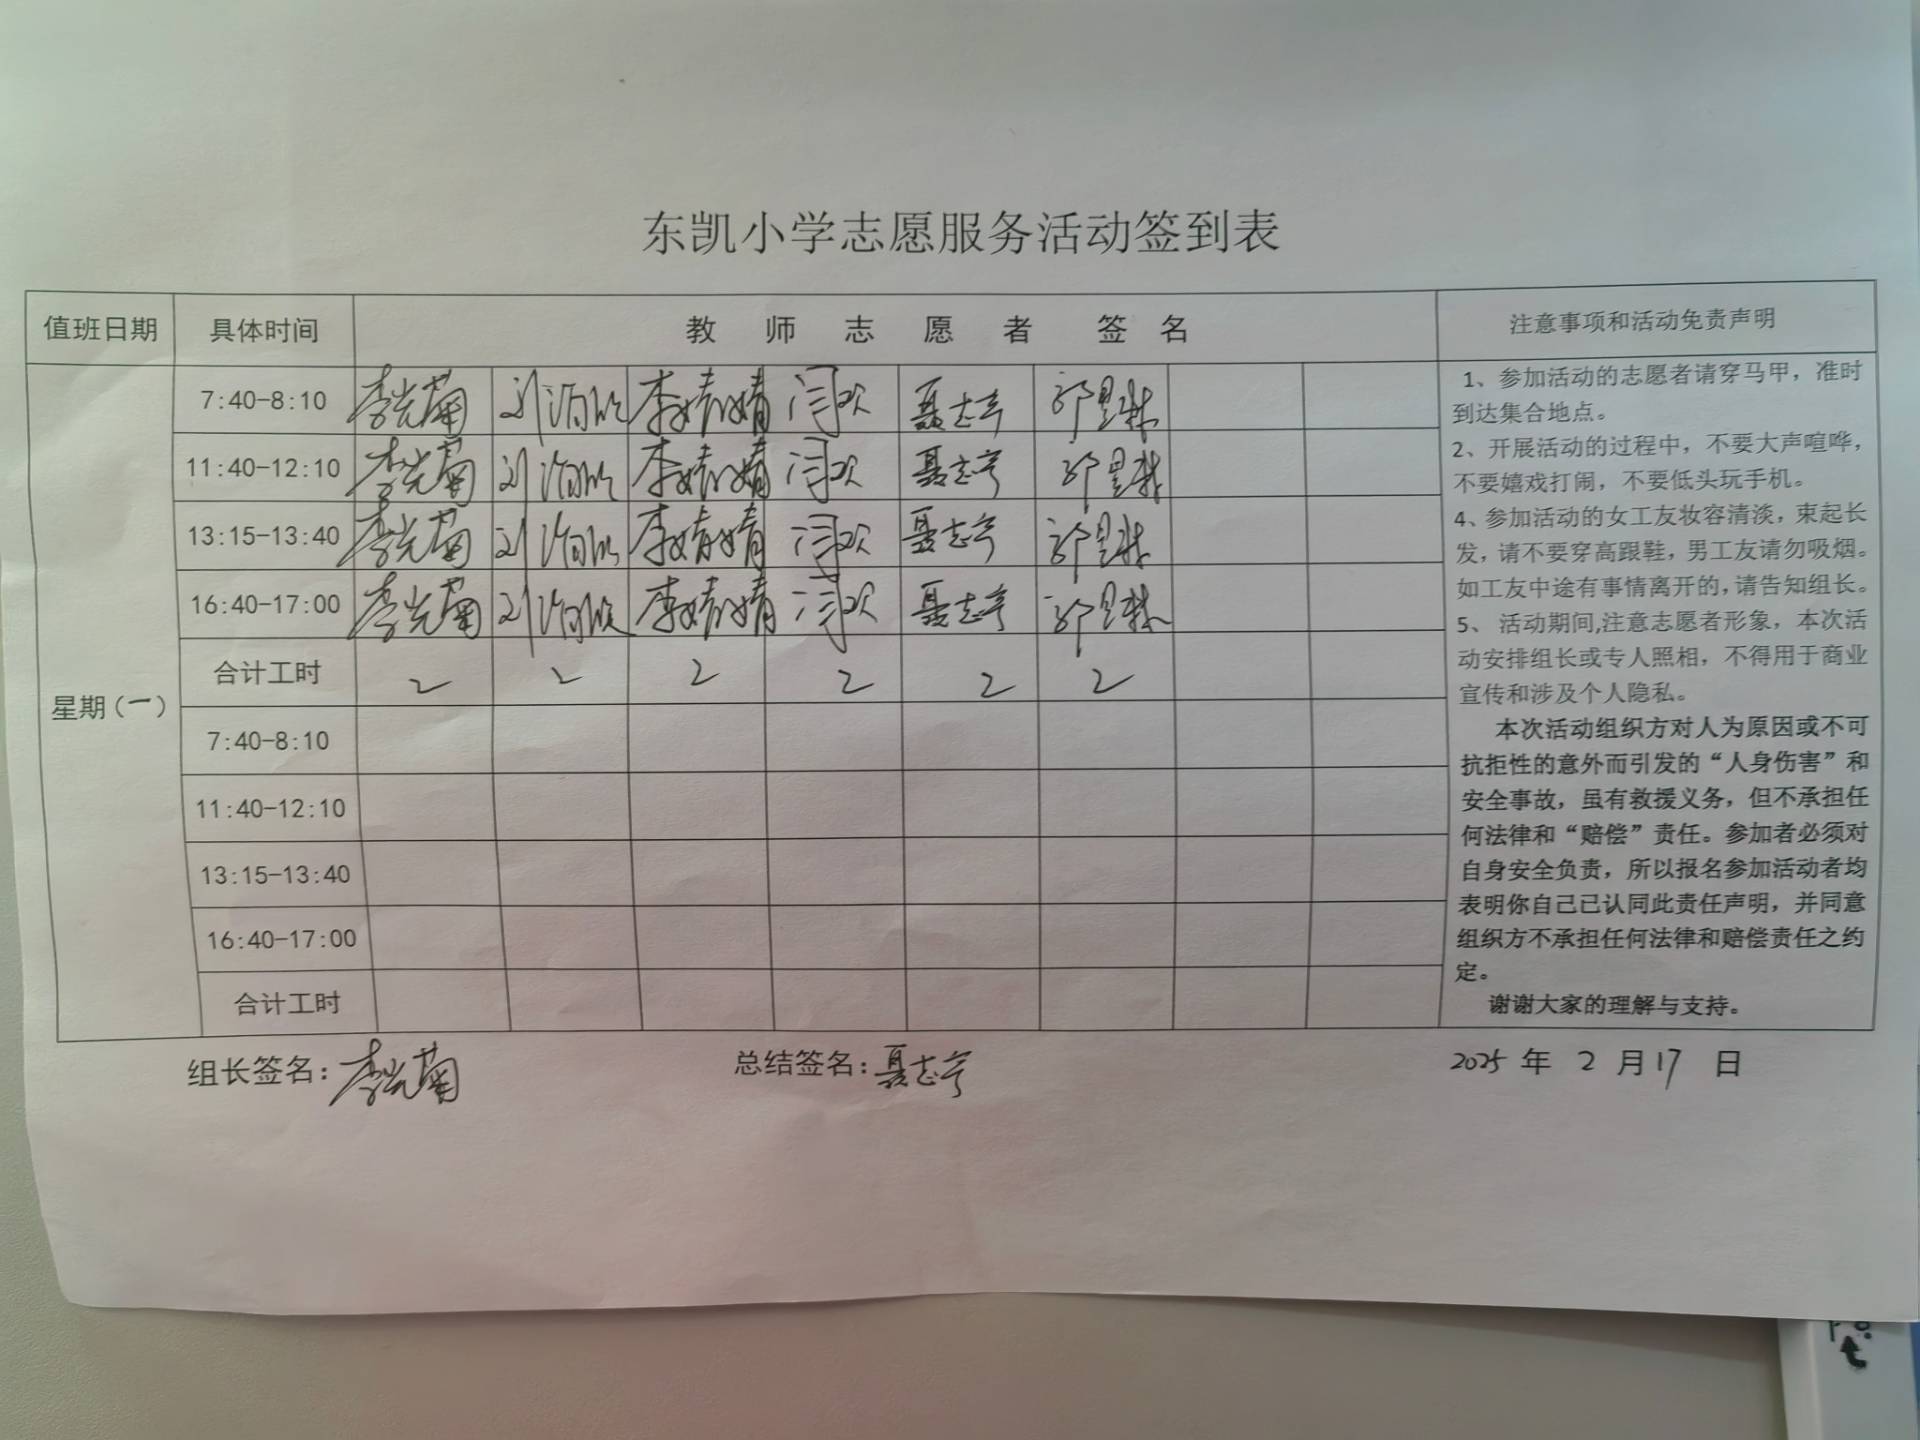 东凯小学志愿服务活动签到表
值班日期 具体时间 教师志愿者签名 注意事项和活动免责声明
星期(一)
7:40-8:10 李光菊 李婧婧 闫欢 聂志宁
11:40-12:10 李光菊 李婧婧 闫欢 聂志宁
13:15-13:40 李光菊 李婧婧 闫欢 聂志宁
16:40-17:00 李光菊 李婧婧 闫欢 聂志宁
合计工时 2 2 2 2 2 2
7:40-8:10
11:40-12:10
13:15-13:40
16:40-17:00
合计工时
1、参加活动的志愿者请穿马甲，准时
到达集合地点。
2、开展活动的过程中，不要大声喧哗，
不要嬉戏打闹，不要低头玩手机。
4、参加活动的女工友妆容清淡，束起长
发，请不要穿高跟鞋，男工友请勿吸烟。
如工友中途有事情离开的，请告知组长。
5、 活动期间,注意志愿者形象，本次活
动安排组长或专人照相，不得用于商业
宣传和涉及个人隐私。
本次活动组织方对人为原因或不可
抗拒性的意外而引发的“人身伤害”和
安全事故，虽有救援义务，但不承担任
何法律和“赔偿”责任。参加者必须对
自身安全负责，所以报名参加活动者均
表明你自己已认同此责任声明，并同意
组织方不承担任何法律和赔偿责任之约
定。
谢谢大家的理解与支持。
组长签名：李光菊 总结签名：聂志宁 2025 年 2 月 17 日